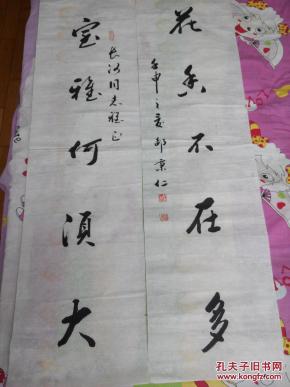 花香不在多
壬申之夏邵秉仁
同志雅正
室雅何須大
孔夫子旧书网